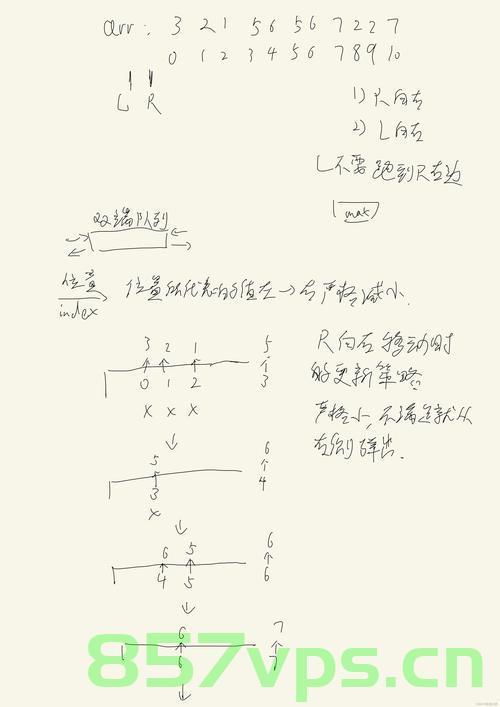 arr: 3 2 1 5 6 5 6 7 2 2 7
0 1 2 3 4 5 6 7 8 9 10
L R
1) R向右
2) L向右
L不要跑到R右边
max
双端队列
位置
index
位置所代表的值 左→右 严格减小.
3 2 1 5
0 1 2 3
× × ×
R向右移动时
的更新策略
严格小, 不满足就从
右侧弹出.
5 6
3 4
×
6 5 6
4 5 6
6 7
6 7
857vps.cn